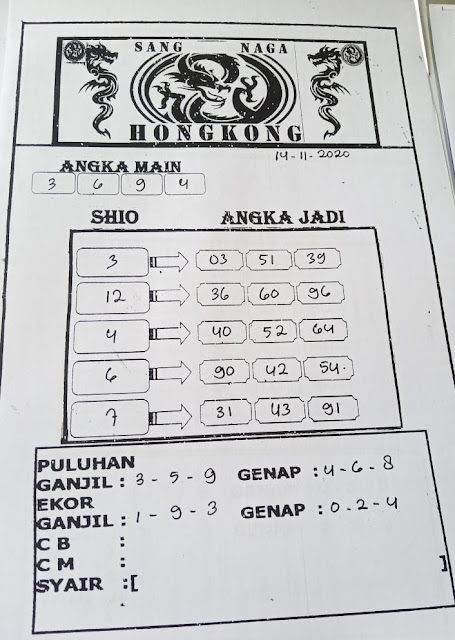 SANG NAGA
HONGKONG
14-11-2020
ANGKA MAIN
3 6 9 4
SHIO ANGKA JADI
3 03 51 39
12 36 60 96
4 40 52 64
6 90 42 54.
7 31 43 91
PULUHAN
GANJIL : 3 - 5 - 9 GENAP : 4 - 6 - 8
EKOR
GANJIL : 1 - 9 - 3 GENAP : 0 . 2 - 4
C B :
C M :
SYAIR :[ ]